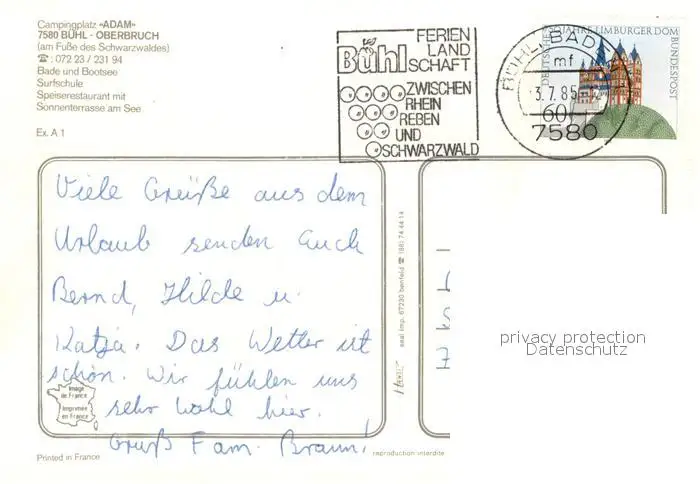 Campingplatz «ADAM»
7580 BÜHL - OBERBRUCH
(am Fuße des Schwarzwaldes)
☎ : 072 23 / 231 94
Bade und Bootsee
Surfschule
Speiserestaurant mit
Sonnenterrasse am See
Ex. A 1
Bühl FERIEN
LAND
SCHAFT
ZWISCHEN
RHEIN
REBEN
UND
SCHWARZWALD
BÜHL, BADEN
mf
-3.7.85
7580
JAHRE LIMBURGER DOM
DEUTSCHE BUNDESPOST
60
Viele Grüße aus dem
Urlaub senden Euch
Bernd, Hilde u.
Katja. Das Wetter ist
schön. Wir fühlen uns
sehr wohl hier.
Gruß Fam. Braun!
Image
de France
Imprimée
en France
Printed in France
reproduction interdite
imp. 67230 benfeld ☎ (88) 74 44 14
privacy protection
Datenschutz